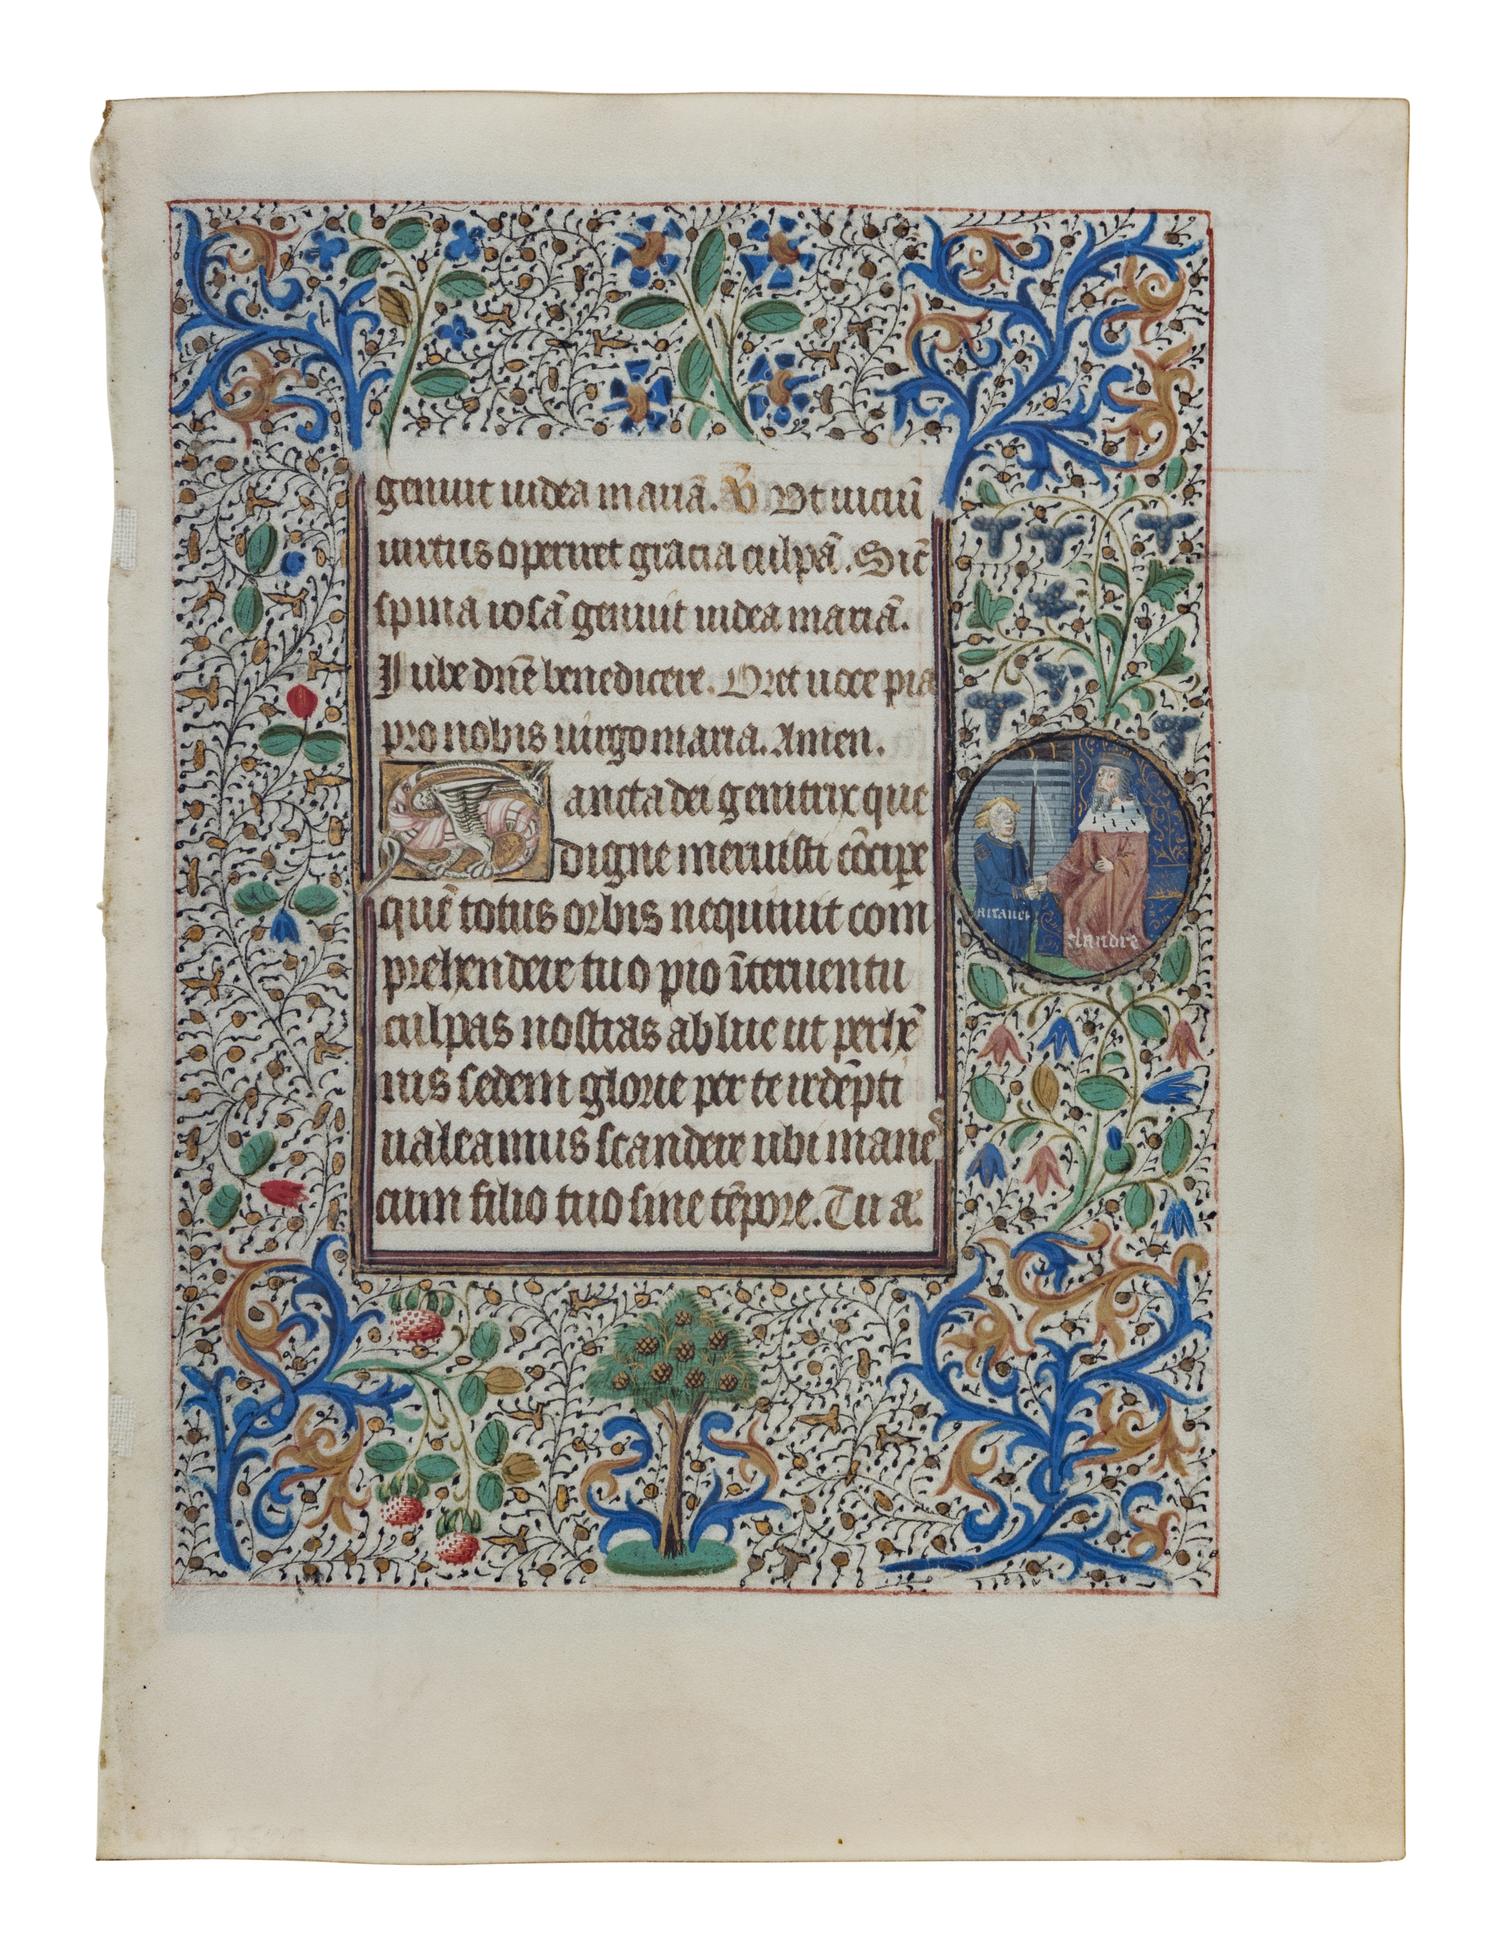 genuit iudea mariã. ℣ Vt uiciũ
uirtus operiret gracia culpã. Sic̃
spina rosã genuit iudea mariã.
Iube dñe benedicere. Oret uoce pia
pro nobis uirgo maria. Amen.
ancta dei genitrix que
digne meruisti cõcipe
quẽ totus orbis nequiuit com
prehendere tuo pio ĩteruentu
culpas nostras ablue ut perhẽ
nis sedem glorie per te redẽpti
ualeamus scandere ubi manes
cum filio tuo sine tẽpore. Tu a.